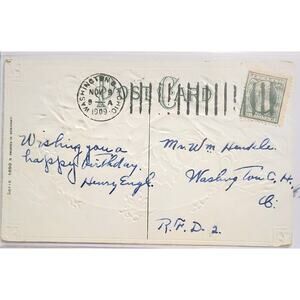 WASHINGTON C.H. OHIO
NOV 9
9 - A
1909
POST CARD
Wishing you a
happy Birthday.
Henry Engle.
Mr. Wm Hendele.
Washington C. H.
O.
R.F.D. 2.